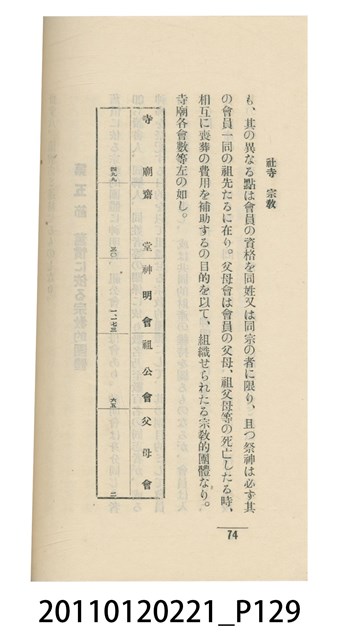 社寺 宗敎
も、其の異なる點は會員の資格を同姓又は同宗の者に限り、且つ祭神は必ず其
の會員一同の祖先たるに在り。父母會は會員の父母、祖父母等の死亡したる時、
相互に喪葬の費用を補助するの目的を以て、組織せられたる宗敎的團體なり。
寺廟各會數等左の如し。
寺廟 齋堂 神明會 祖公會 父母會
五〇 一二七三 六五 二
74
20110120221_P129